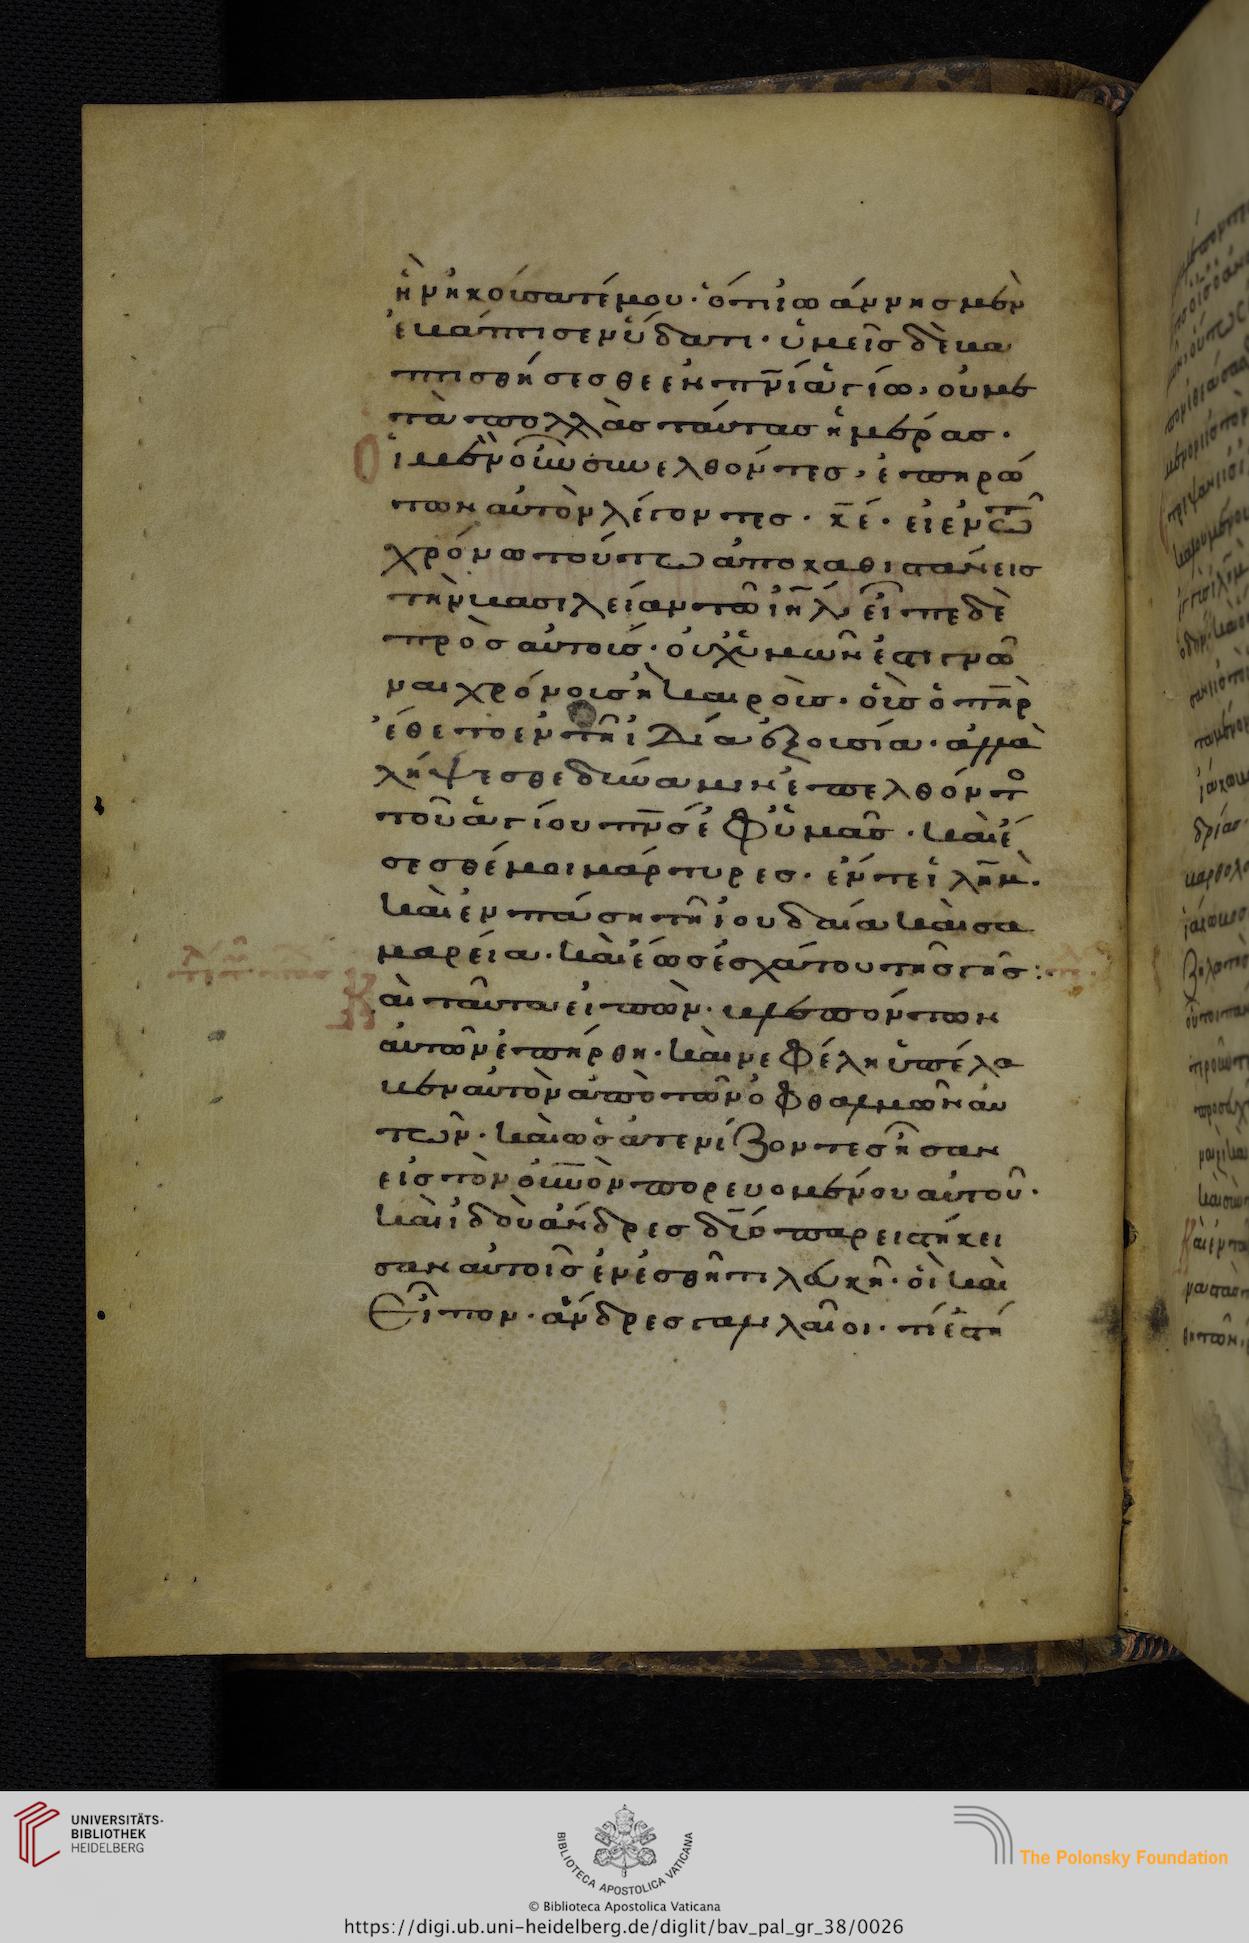 ἣν ἠκούσατέ μου· ὅτι ἰωάννης μὲν
ἐβάπτισεν ὕδατι· ὑμεῖς δὲ βα
πτισθήσεσθε ἐν πνῑ ἁγίω, οὐ με
τὰ πολλὰς ταύτας ἡμέρας·
Οἱ μὲν οὖν συνελθόντες, ἐπηρώ
των αὐτὸν λέγοντες· κ̄ε· εἰ ἐν τῶ
χρόνω τούτω ἀποκαθιστάνεις
τὴν βασιλείαν τῶ ιη̄λ· εἶπε δὲ
πρὸς αὐτούς· οὐχ ὑμῶν ἐστι γνῶ
ναι χρόνους ἢ καιροὺς· οὓς ὁ πη̄ρ
ἔθετο ἐν τῆ ἰδία ἐξουσία· ἀλλὰ
λήψεσθε δύναμιν ἐπελθόντο
τοῦ ἁγίου πν̄ς ἐφ ὑμᾶς· καὶ ἔ
σεσθέ μοι μάρτυρες· ἔν τε ἱλη̄μ·
καὶ ἐν πάση τῆ ἰουδαία καὶ σα
μαρεία· καὶ ἕως ἐσχάτου τῆς γῆς:
Καὶ ταῦτα εἰπὼν· βλεπόντων
αὐτῶν ἐπήρθη· καὶ νεφέλη ὑπέλα
βεν αὐτὸν ἀπὸ τῶν ὀφθαλμῶν αὐ
τῶν· καὶ ὡς ἀτενίζοντες ἦσαν
εἰς τὸν οὐν̄ὸν πορευομένου αὐτοῦ·
καὶ ἰδοὺ ἄνδρες δύο παρειστήκει
σαν αὐτοῖς ἐν ἐσθῆτι λευκῆ· οἳ καὶ
εἶπον· ἄνδρες γαλιλαῖοι· τί ἑστή
UNIVERSITÄTS-
BIBLIOTHEK
HEIDELBERG
BIBLIOTECA APOSTOLICA VATICANA
The Polonsky Foundation
© Biblioteca Apostolica Vaticana
https://digi.ub.uni-heidelberg.de/diglit/bav_pal_gr_38/0026